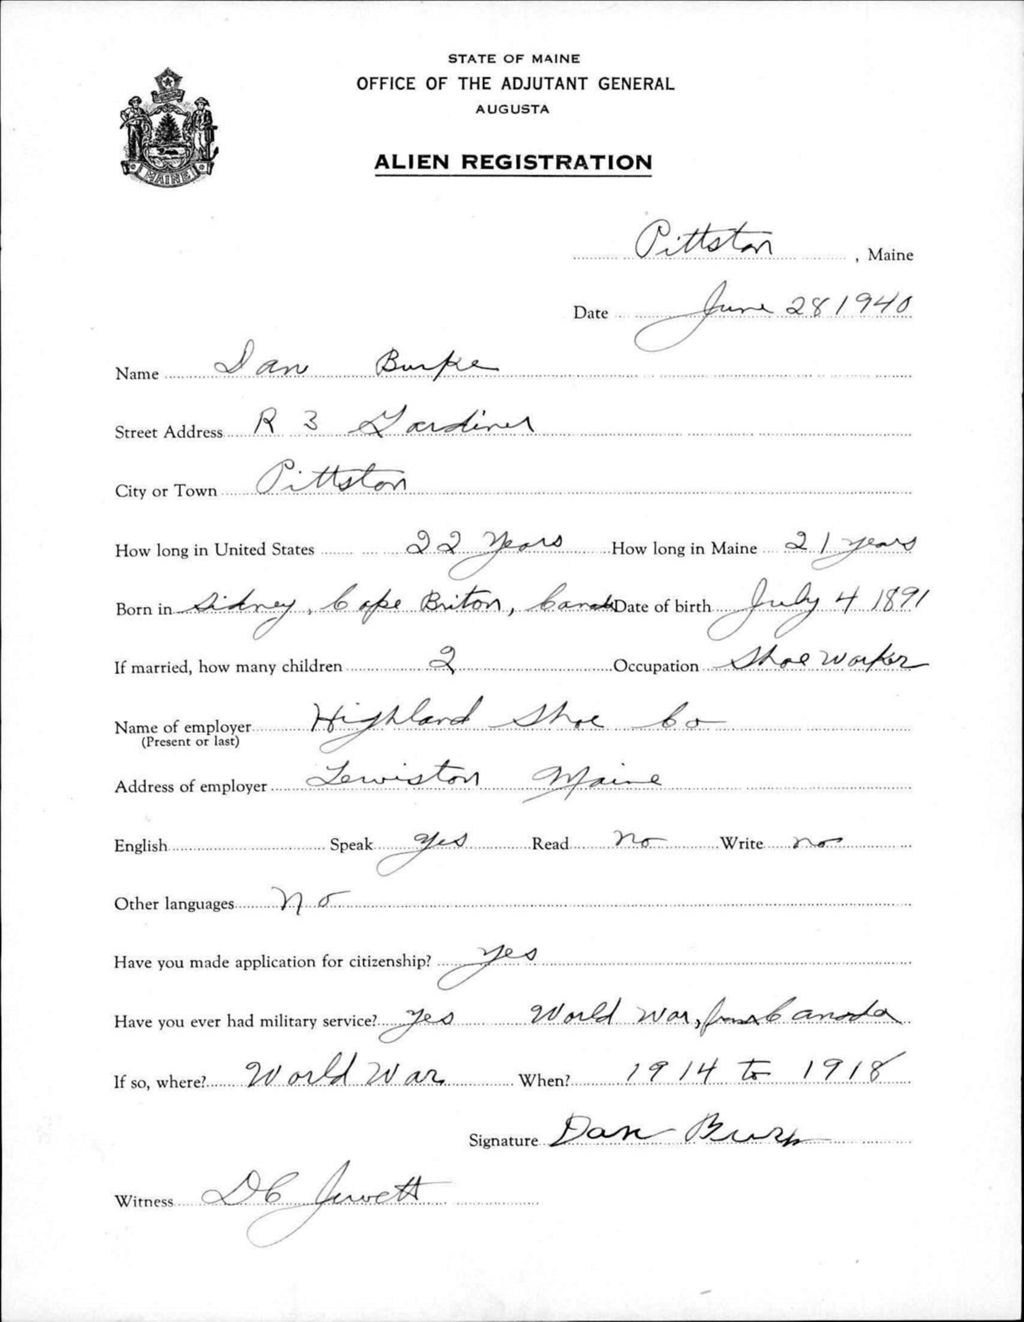 STATE OF MAINE
OFFICE OF THE ADJUTANT GENERAL
AUGUSTA
ALIEN REGISTRATION
MAINE
Pittston, Maine
Date June 28 1940
Name Dan Burke
Street Address R 3 Gardiner
City or Town Pittston
How long in United States 22 Years How long in Maine 21 years
Born in Sidney, Cape Briton, Canada Date of birth July 4 1891
If married, how many children 2 Occupation Shoe Worker
Name of employer Highland Shoe Co
(Present or last)
Address of employer Lewiston Maine
English Speak yes Read no Write no
Other languages no
Have you made application for citizenship? yes
Have you ever had military service? yes World War, from Canada
If so, where? World War When? 1914 to 1918
Signature Dan Burk
Witness DC Jewett